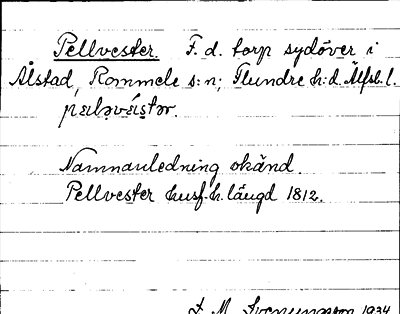 Pellvester. F. d. torp sydöver i
Ålstad, Rommele s:n; Flundre h:d. Älfsb. l.
Namnanledning okänd.
Pellvester husf.h.längd 1812.
1934